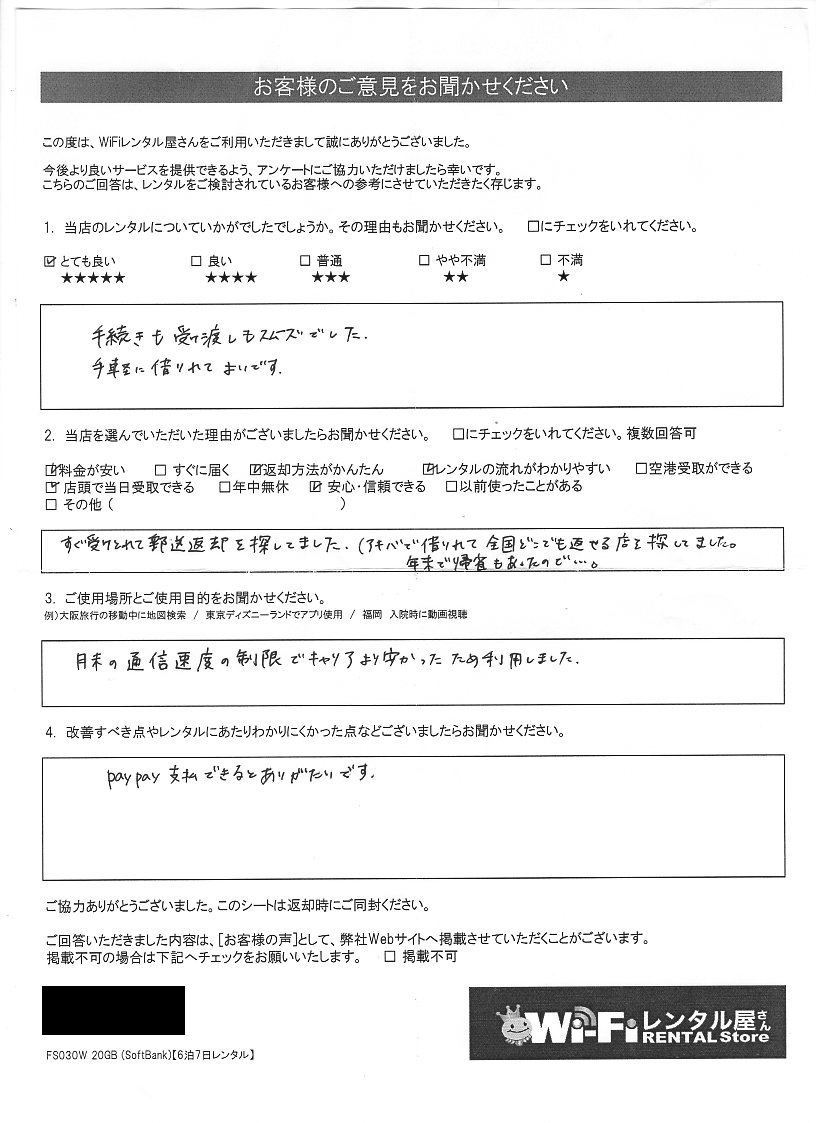 お客様のご意見をお聞かせください
この度は、WiFiレンタル屋さんをご利用いただきまして誠にありがとうございました。
今後より良いサービスを提供できるよう、アンケートにご協力いただけましたら幸いです。
こちらのご回答は、レンタルをご検討されているお客様への参考にさせていただきたく存じます。
1. 当店のレンタルについていかがでしたでしょうか。その理由もお聞かせください。 □にチェックをいれてください。
☑ とても良い □ 良い □ 普通 □ やや不満 □ 不満
★★★★★ ★★★★ ★★★ ★★ ★
手続きも受け渡しもスムーズでした.
手軽に借りれてよいです.
2. 当店を選んでいただいた理由がございましたらお聞かせください。 □にチェックをいれてください。複数回答可
☑料金が安い □ すぐに届く ☑返却方法がかんたん ☑レンタルの流れがわかりやすい □空港受取ができる
☑ 店頭で当日受取できる □年中無休 ☑ 安心・信頼できる □以前使ったことがある
□ その他 ( )
すぐ受けとれて郵送返却を探してました. (アキバで借りれて全国どこでも返せる店を探してました。
年末で帰省もあったので…。
3. ご使用場所とご使用目的をお聞かせください。
例)大阪旅行の移動中に地図検索 / 東京ディズニーランドでアプリ使用 / 福岡 入院時に動画視聴
月末の通信速度の制限でキャリアより安かったため利用しました.
4. 改善すべき点やレンタルにあたりわかりにくかった点などございましたらお聞かせください。
paypay 支払できるとありがたいです.
ご協力ありがとうございました。このシートは返却時にご同封ください。
ご回答いただきました内容は、[お客様の声]として、弊社Webサイトへ掲載させていただくことがございます。
掲載不可の場合は下記へチェックをお願いいたします。 □ 掲載不可
Wi-Fiレンタル屋さん
RENTAL Store
FS030W 20GB (SoftBank)【6泊7日レンタル】